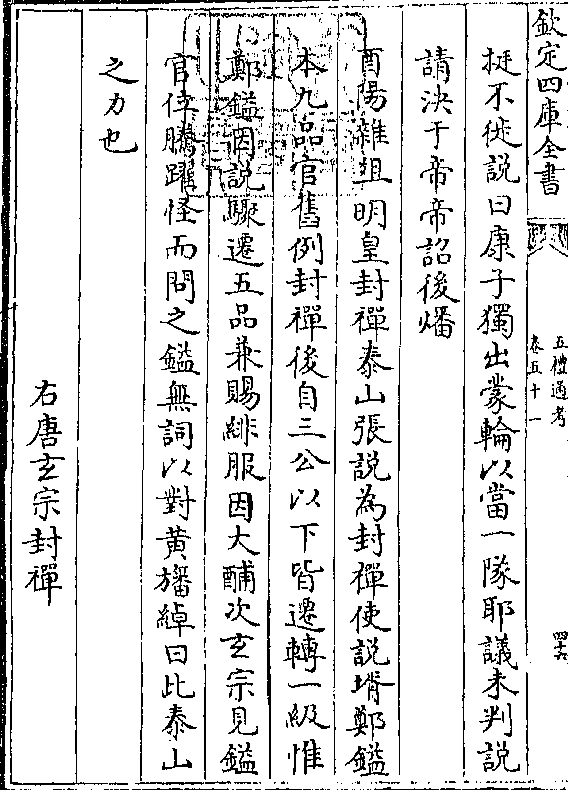 欽定四庫全書
五禮通考
卷五十一
四十六
挺不徙說曰康子獨出蒙輪以當一隊耶議未判說
請決于帝帝詔後燔
酉陽雜俎明皇封禪泰山張說為封禪使說壻鄭鎰
本九品官舊例封禪後自三公以下皆遷轉一級惟
鄭鎰因說驟遷五品兼賜緋服因大酺次玄宗見鎰
官位騰躍怪而問之鎰無詞以對黃旛綽曰此泰山
之力也
右唐玄宗封禪